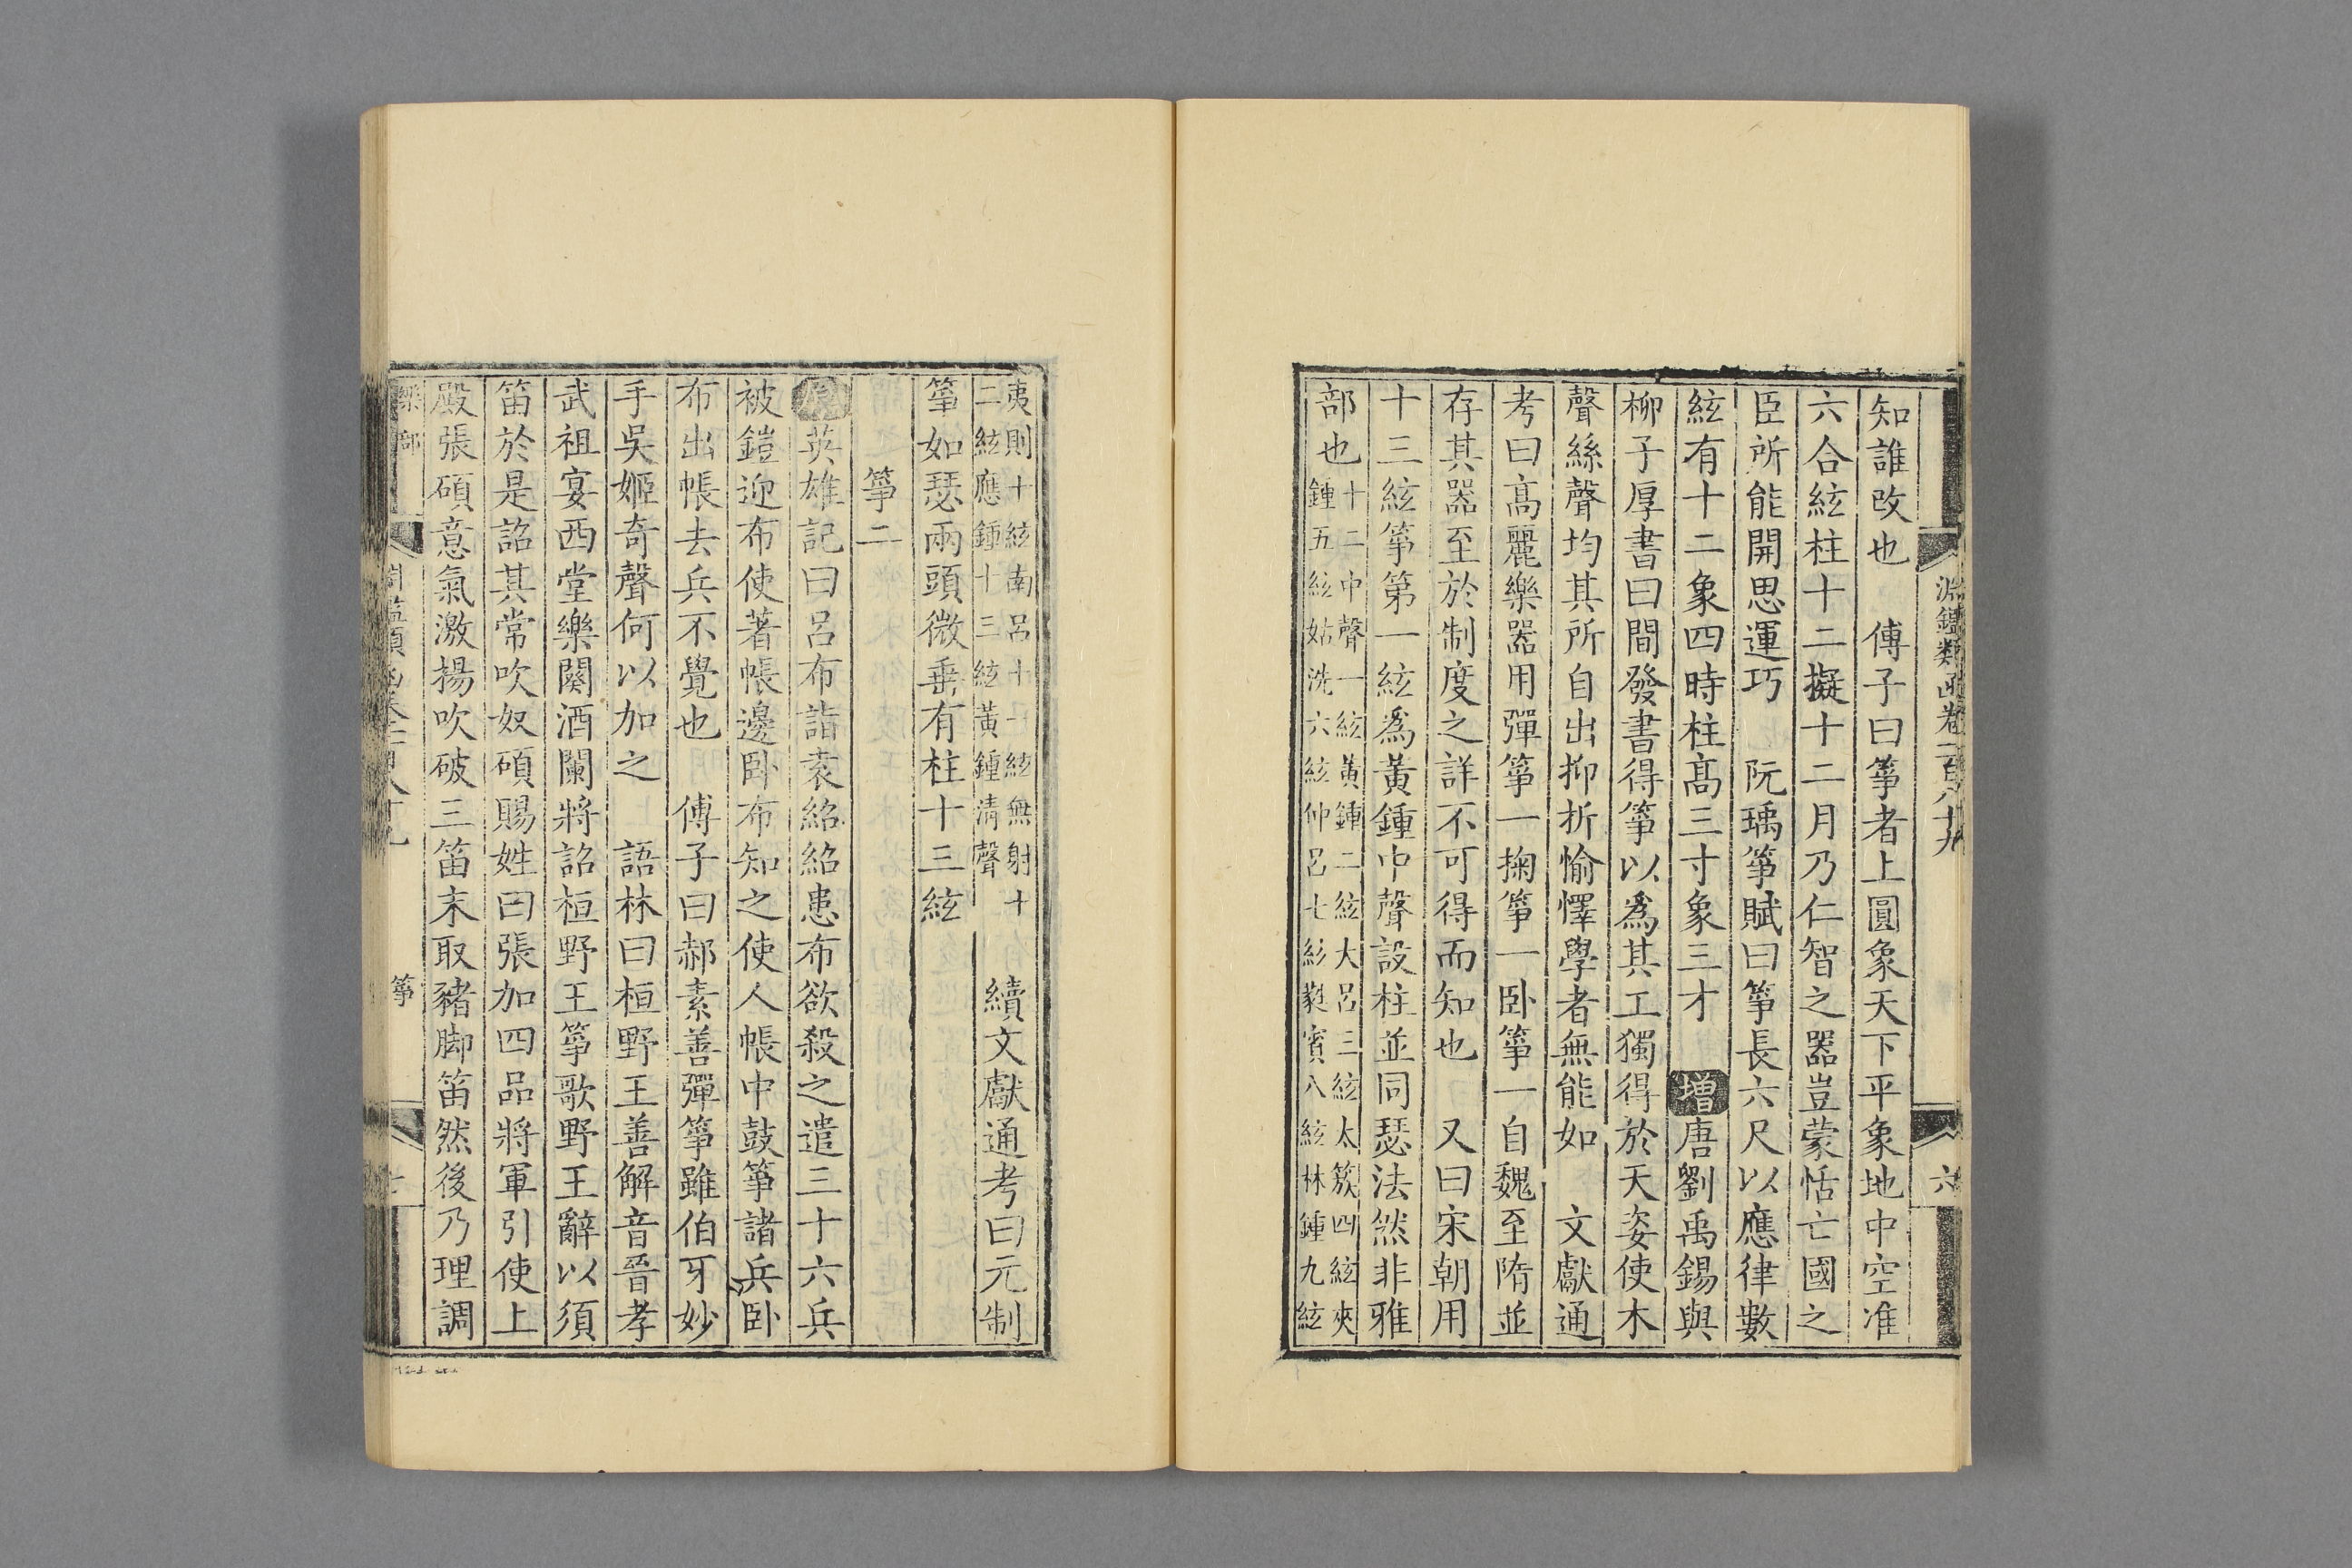 淵鑑類函卷一百八十九
六
知誰改也 傅子曰箏者上圓象天下平象地中空准
六合絃柱十二擬十二月乃仁智之器豈蒙恬亡國之
臣所能開思運巧 阮瑀箏賦曰箏長六尺以應律數
絃有十二象四時柱髙三寸象三才 增唐劉禹錫與
柳子厚書曰間發書得箏以爲其工獨得於天姿使木
聲絲聲均其所自出抑折愉懌學者無能如 文獻通
考曰髙麗樂器用彈箏一掬箏一卧箏一自魏至隋並
存其器至於制度之詳不可得而知也 又曰宋朝用
十三絃箏第一絃爲黃鍾中聲設柱並同瑟法然非雅
部也十二中聲一絃黃鍾二絃大呂三絃太簇四絃夾
鍾五絃姑洗六絃仲呂七絃蕤賓八絃林鍾九絃
夷則十絃南呂十一絃無射十
二絃應鍾十三絃黃鍾清聲 續文獻通考曰元制
箏如瑟兩頭微垂有柱十三絃
箏二
英雄記曰呂布詣袁紹紹患布欲殺之遣三十六兵
被鎧迎布使著帳邊卧布知之使人帳中鼓箏諸兵卧
布出帳去兵不覺也 傅子曰郝素善彈箏雖伯牙妙
手吳姬奇聲何以加之 語林曰桓野王善解音晉孝
武祖宴西堂樂闋酒闌將詔桓野王箏歌野王辭以須
笛於是詔其常吹奴碩賜姓曰張加四品將軍引使上
殿張碩意氣激揚吹破三笛末取豬脚笛然後乃理調
樂部
箏